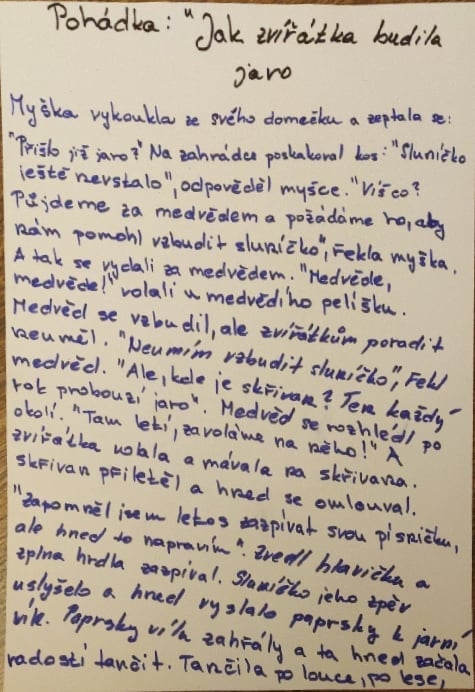 Pohádka: "Jak zvířátka budila
jaro
Myška vykoukla ze svého domečku a zeptala se:
"Přišlo již jaro?" Na zahrádce poskakoval kos: "Sluníčko
ještě nevstalo", odpověděl myšce. "Víš co?
Půjdeme za medvědem a požádáme ho, aby
nám pomohl vzbudit sluníčko", řekla myška.
A tak se vydali za medvědem. "Medvěde,
medvěde!" volali u medvědího pelíšku.
Medvěd se vzbudil, ale zvířátkům poradit
neuměl. "Neumím vzbudit sluníčko", řekl
medvěd. "Ale, kde je skřivan? Ten každý
rok probouzí jaro". Medvěd se rozhlédl po
okolí. "Tam letí, zavoláme na něho!" A
zvířátka volala a mávala na skřivana.
Skřivan přiletěl a hned se omlouval.
"Zapomněl jsem letos zazpívat svou písničku,
ale hned to napravím". Zvedl hlavičku a
zplna hrdla zazpíval. Sluníčko jeho zpěv
uslyšelo a hned vyslalo paprsky k jarní
víle. Paprsky vílu zahřály a ta hned začala
radostí tančit. Tančila po louce, po lese,